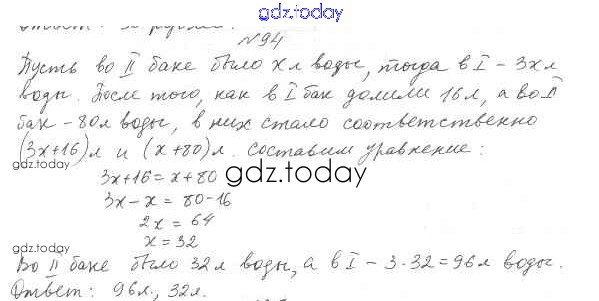 gdz.today
№94
Пусть во II баке было x л воды, тогда в I - 3x л
воды. После того, как в I бак долили 16 л, а во II
бак - 80 л воды, в них стало соответственно
(3x+16) л и (x+80) л. составим уравнение:
gdz.today
3x+16=x+80
gdz.today
3x-x=80-16
2x=64
x=32
gdz.today
Во II баке было 32 л воды, а в I - 3·32=96 л воды.
Ответ: 96 л., 32 л.
gdz.today